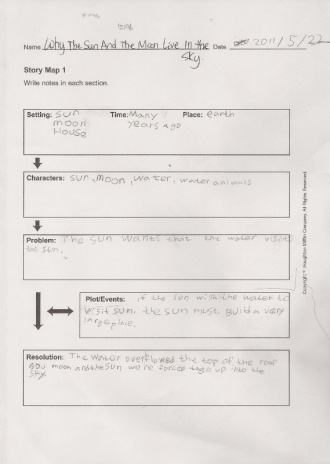 Name Why The Sun And The Moon Live In the Date 2011/5/22
Sky.
Story Map 1
Write notes in each section.
Setting: Sun Time: Many Place: earth
moon years ago
House
Characters: sun, moon, water, water animals
Problem: The sun wants that the water visits
the sun.
Plot/Events: if the sun wish the water to
visit sun, the sun must build a very
large place.
Resolution: The water overflowed the top of the roof
moon and the sun we're forced to go up into the
sky.
Copyright © Houghton Mifflin Company. All Rights Reserved.